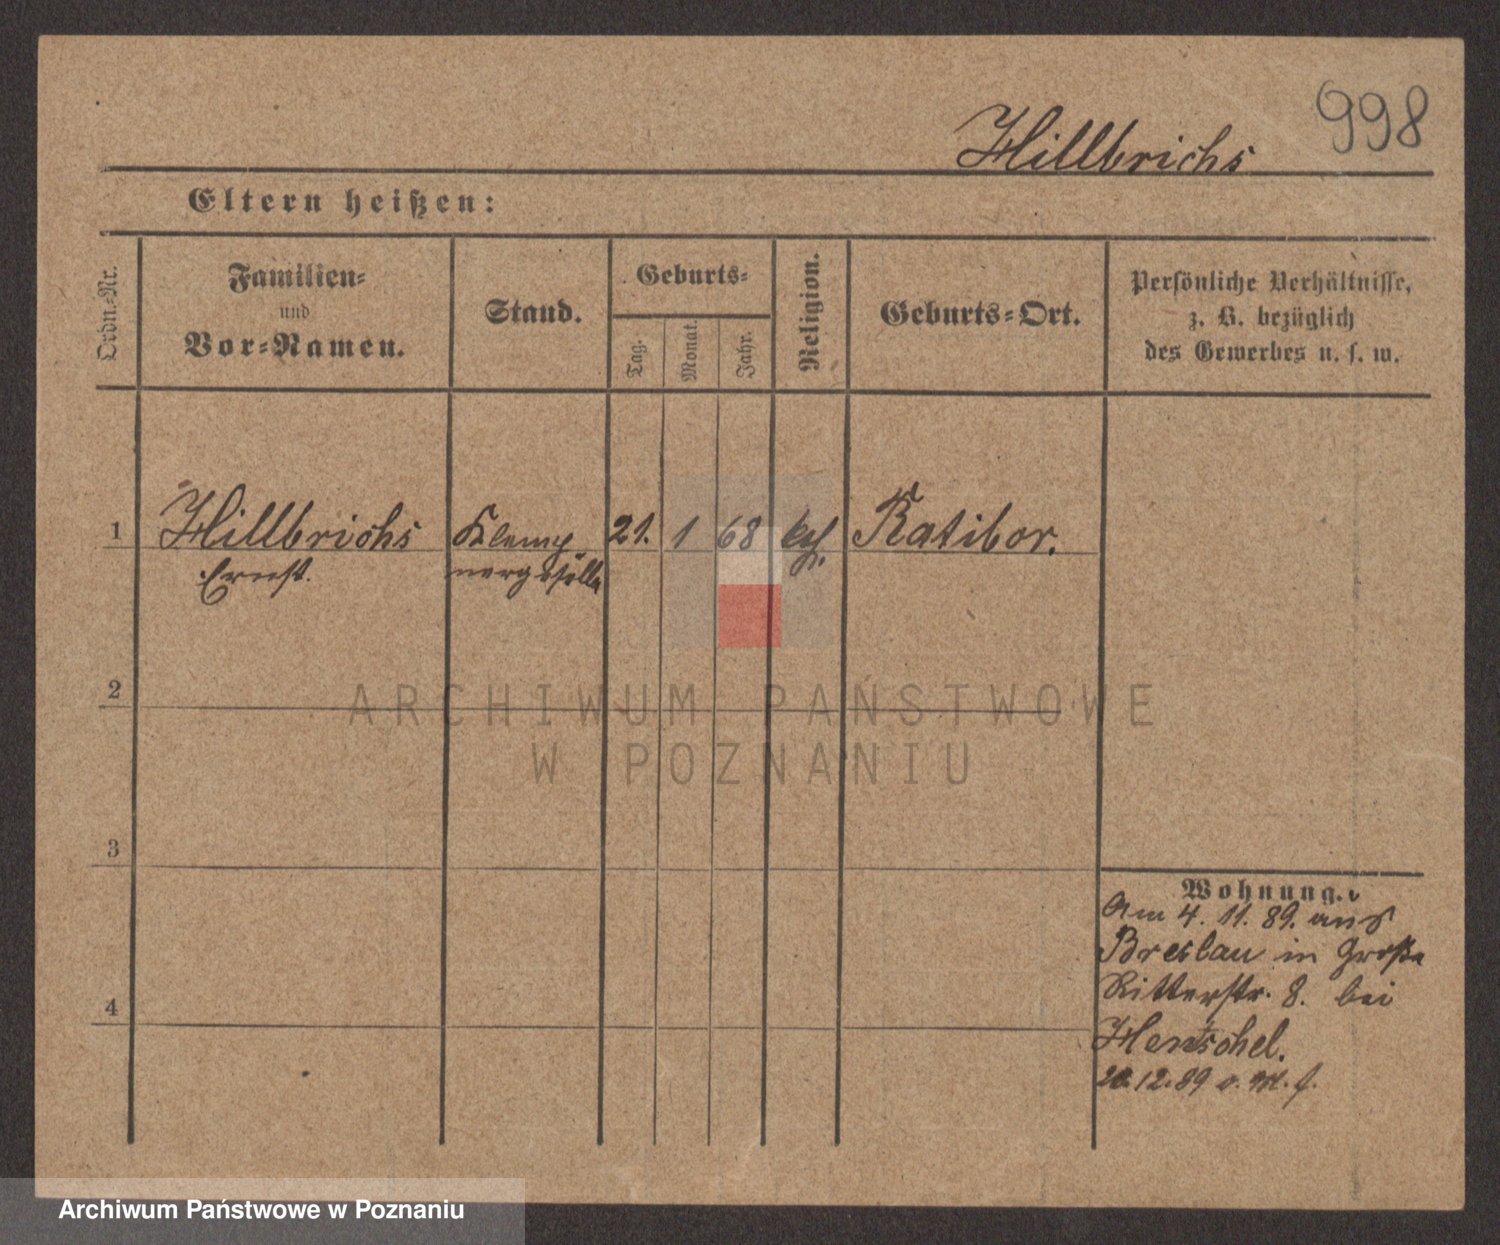 998
Hillbrichs
Eltern heißen:
Ordn.-Nr.
Familien-
und
Vor-Namen.
Stand.
Geburts-
Tag.
Monat.
Jahr.
Religion.
Geburts-Ort.
Persönliche Verhältnisse,
z. B. bezüglich
des Gewerbes u. s. w.
1
Hillbrichs
Ernst.
Klemp
nergeselle
21.
1
68
Ratibor.
2
ARCHIWUM PAŃSTWOWE
W POZNANIU
3
4
Wohnung.
Am 4. 11. 89. aus
Breslau in Große
Ritterstr. 8. bei
Hentschel.
12.89
Archiwum Państwowe w Poznaniu